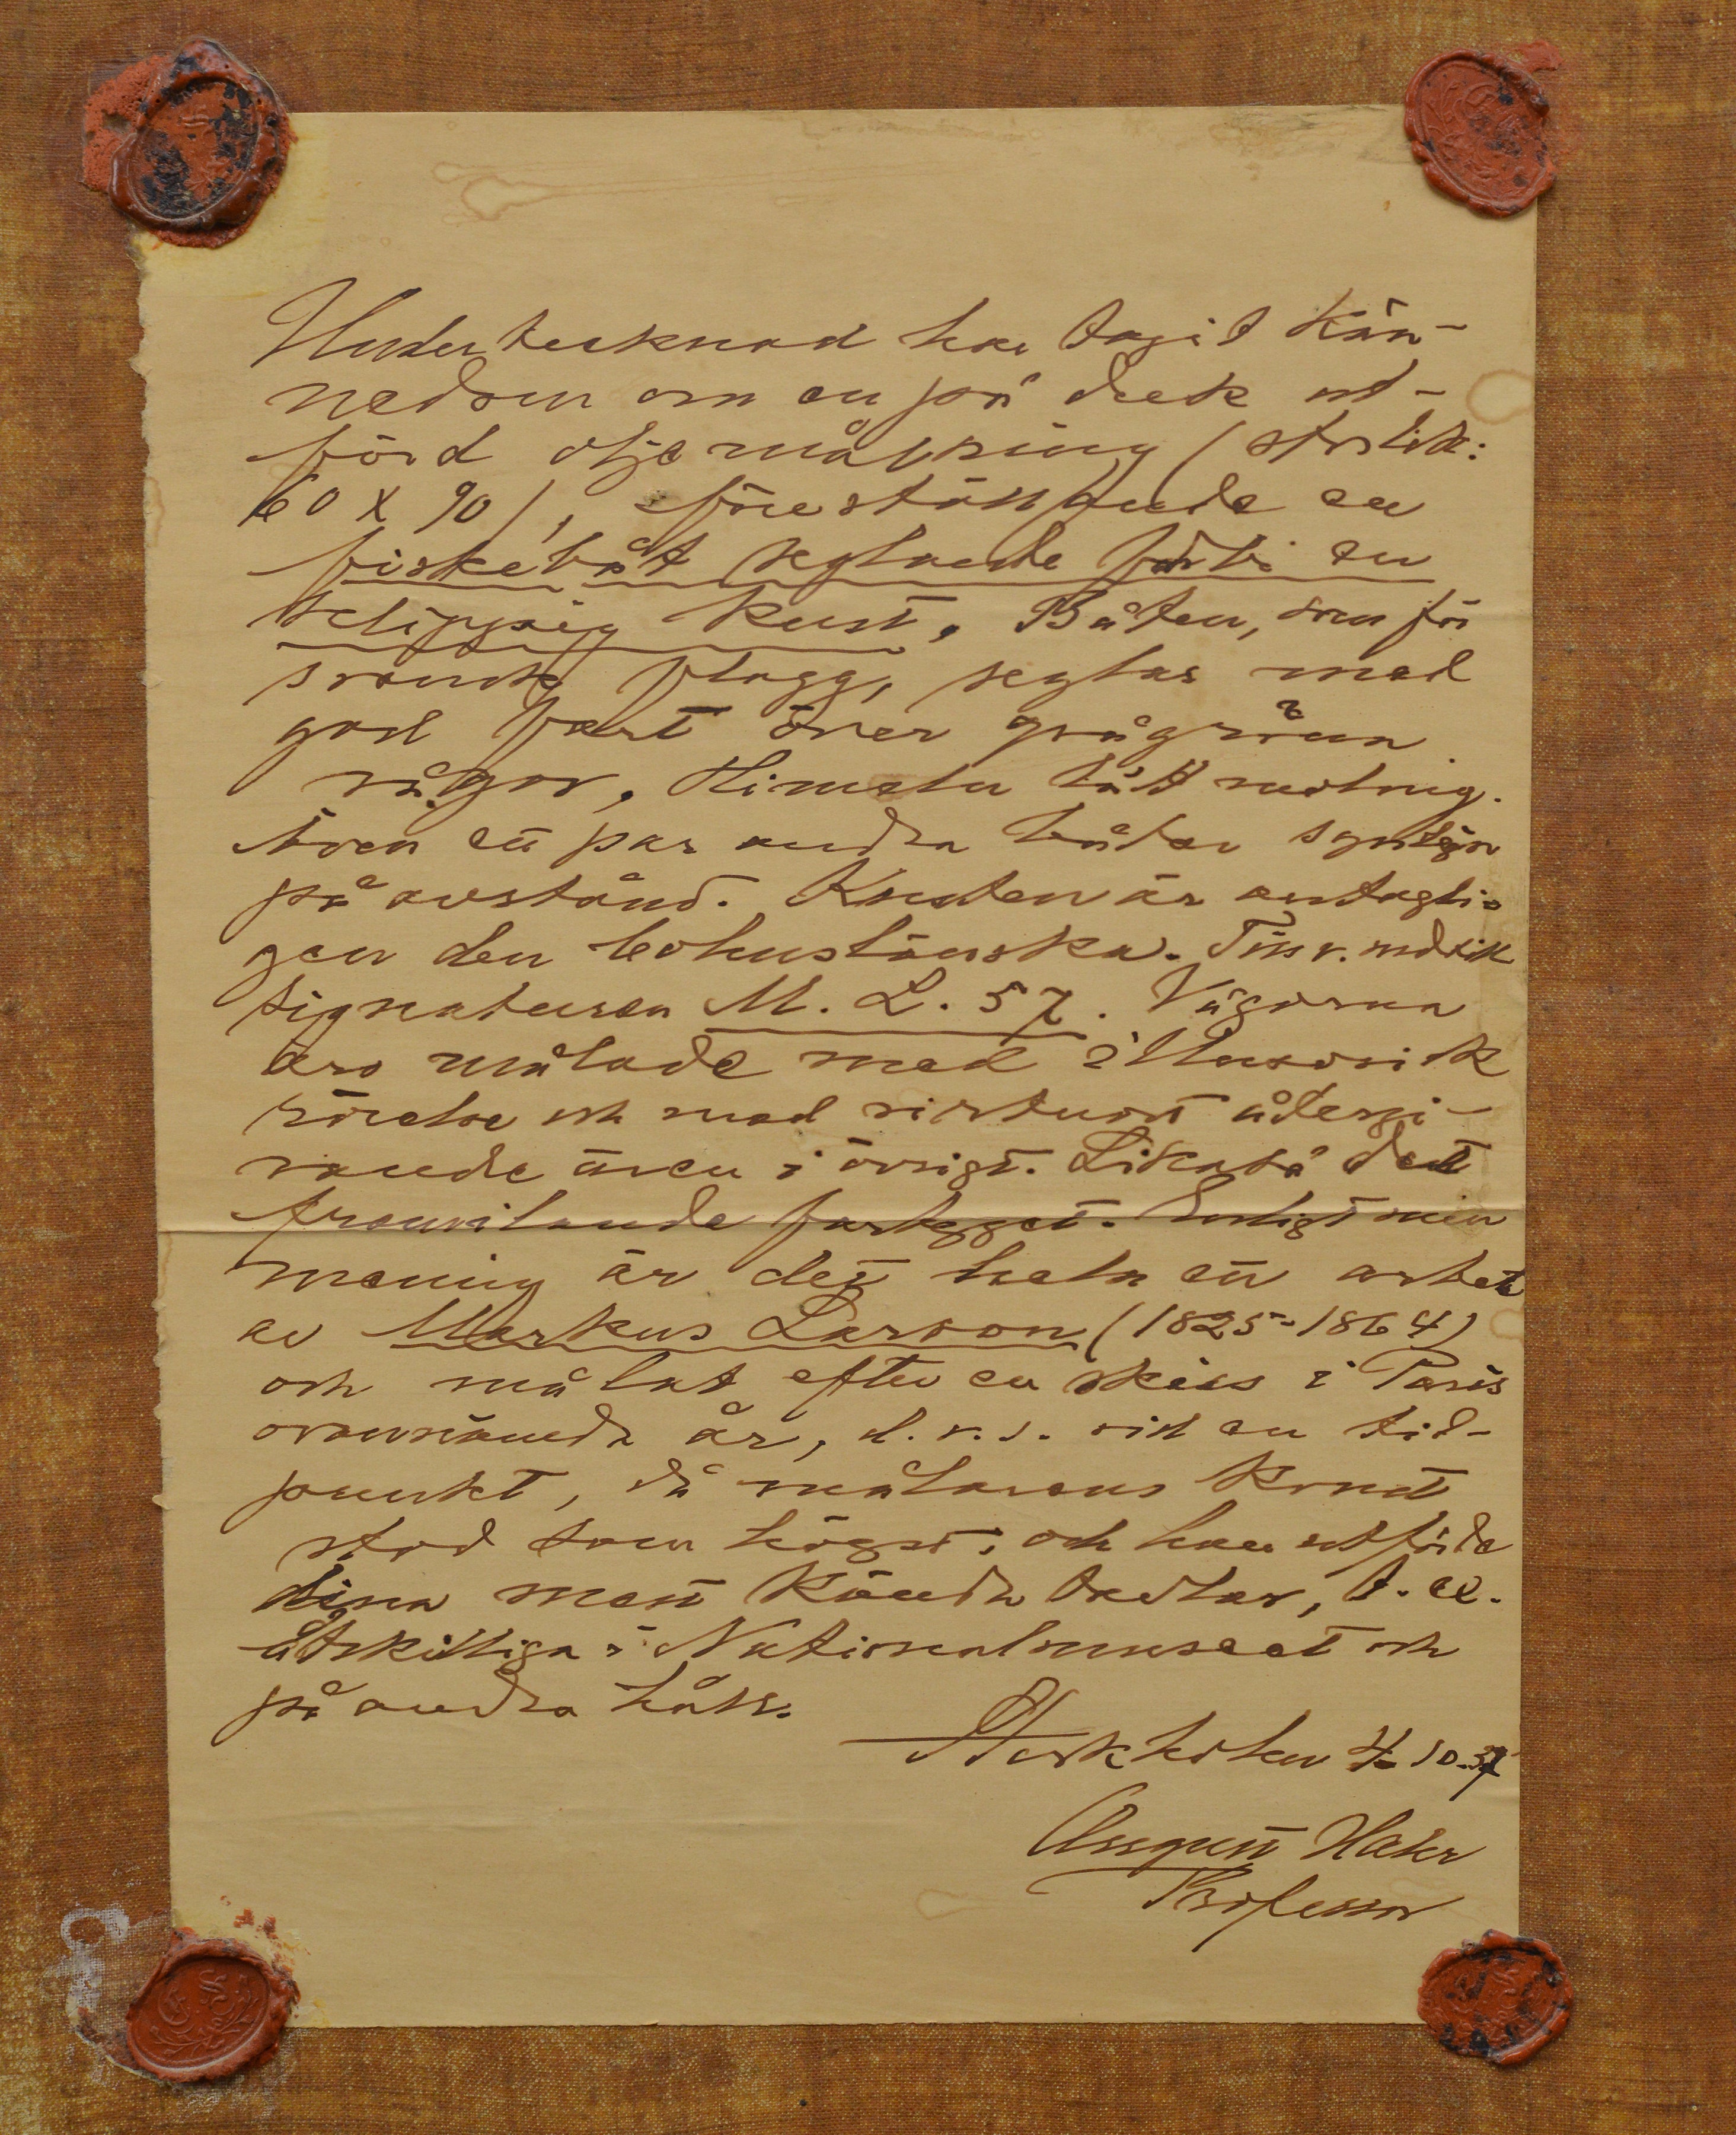 Undertecknad har tagit kän-
nedom om en på duk ut-
förd oljemålning (storlek:
60 x 90), föreställande en
fiskebåt seglande förbi en
klippig kust. Båten, som för
svensk flagg, seglar med
god fart över grågröna
vågor. Himeln lätt molnig.
Även ett par andra båtar synliga
på avstånd. Kusten är antagli-
gen den bohuslänska. T.v. märkt
signaturen M. L. 57. Vågorna
äro målade med illusorisk
rörelse och med virtuost återgi-
vande även i övrigt. Likaså det
framilande fartyget. Enligt min
mening är det hela ett arbete
av Markus Larson (1825-1864)
och målat efter en skiss i Paris
ovannämnda år, d.v.s. vid en tid-
punkt, då målarens konst
stod som högst, och han utförde
sina mest kända tavlor, t. ex.
åtskilliga i Nationalmuseet och
på andra håll.
Stockholm 4.10.37
August Hahr
Professor